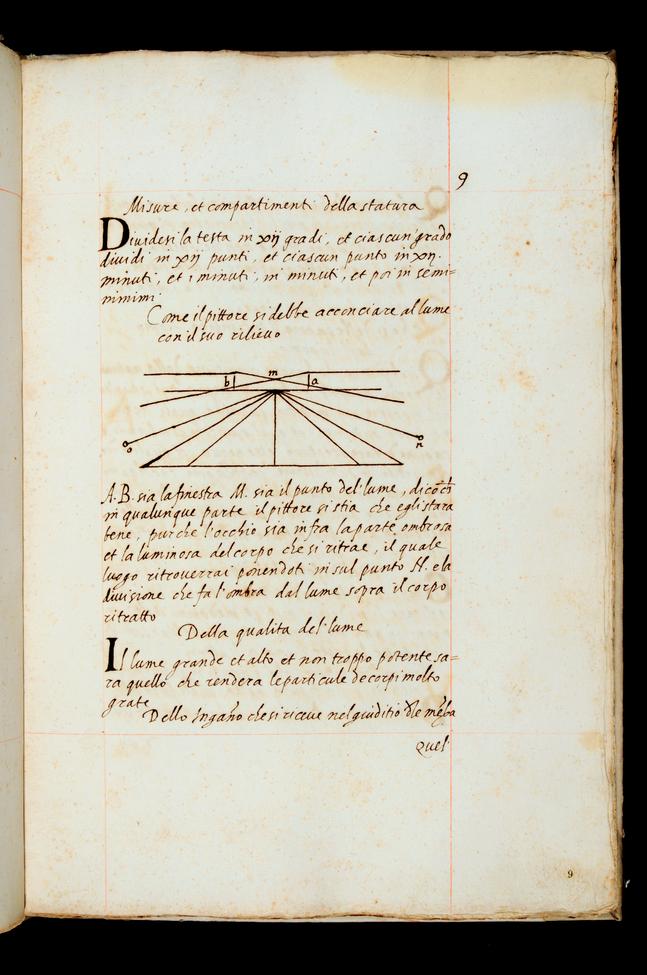 9
Misure, et compartimenti della statura
Dividesi la testa in xij gradi, et ciascun grado
dividi in xij punti, et ciascun punto in xij.
minuti, et i minuti, in minuti, et poi in semi=
minimi
Come il pittore si debbe acconciare al lume
con il suo rilievo
m
b a
o n
A. B. sia la finestra M. sia il punto del lume, dico ch
in qualunque parte il pittore si stia che egli stara
bene, purche l'occhio sia infra la parte ombrosa
et la luminosa del corpo che si ritrae, il quale
luogo ritroverrai ponendoti in sul punto M. e la
divisione che fa l'ombra dal lume sopra il corpo
ritratto
Della qualita del lume
Il lume grande et alto et non troppo potente sa=
ra quello che rendera le particule de corpi molto
grate
Dello Ingano che si riceve nel giuditio de
Quel
9